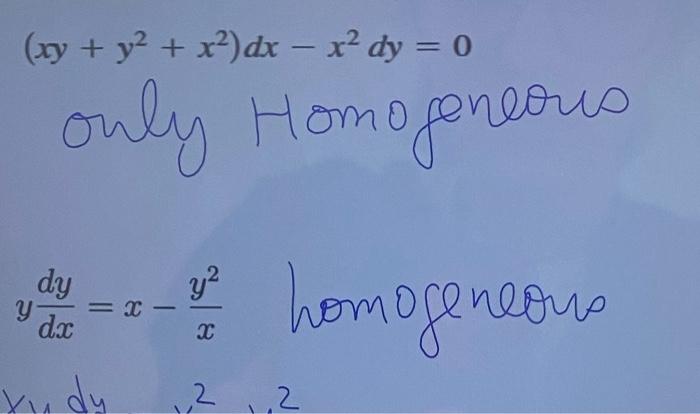 (xy + y² + x²)dx − x² dy = 0
only Homogeneous
y dy/dx = x − y²/x homogeneous
xy dy